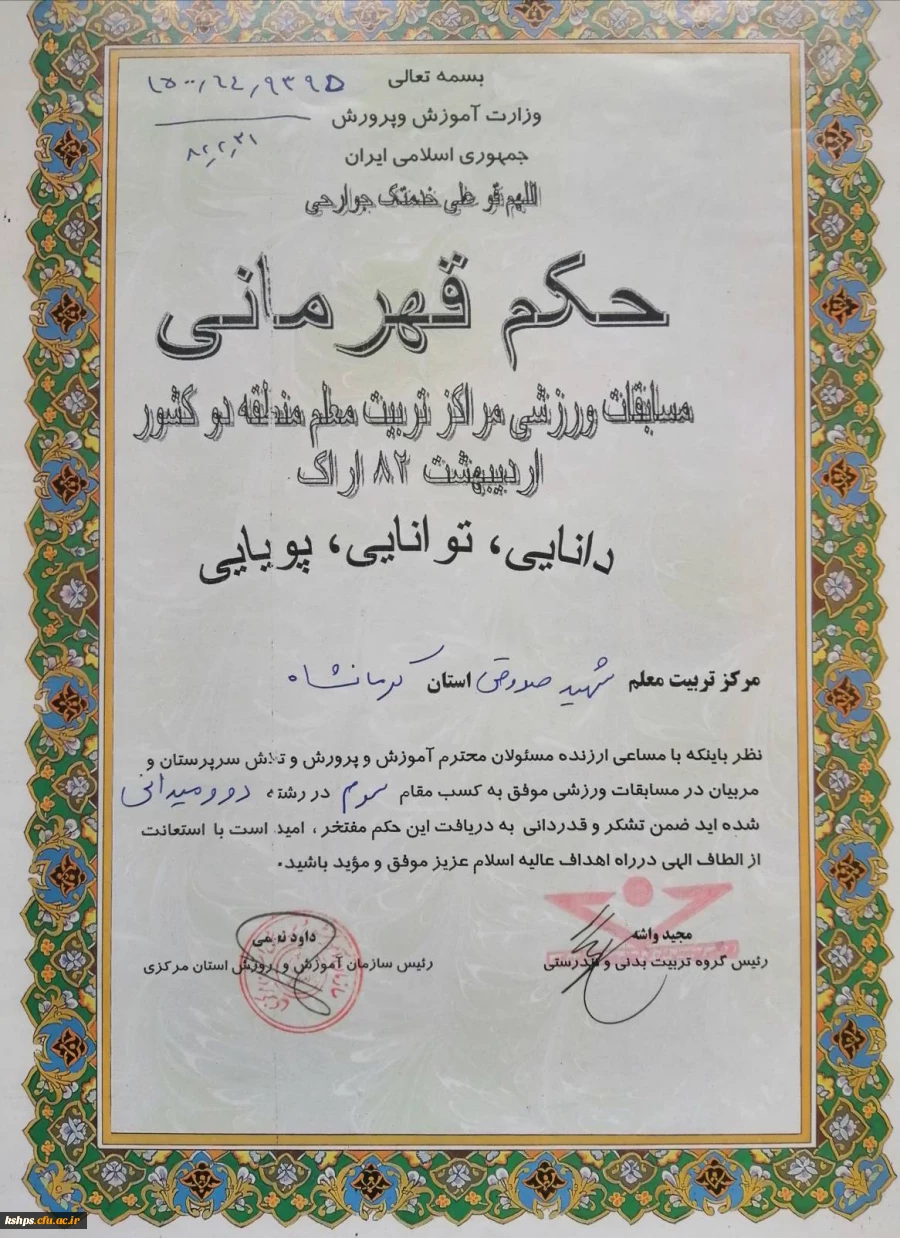 بسمه تعالی
وزارت آموزش وپرورش
جمهوری اسلامی ایران
۸۲٫۲٫۳۱
اللهم قو علی خدمتک جوارحی
حکم قهرمانی
مسابقات ورزشی مراکز تربیت معلم منطقه دو کشور
اردیبهشت ۸۲ اراک
دانایی، توانایی، پویایی
مرکز تربیت معلم شهید صدوقی استان کرمانشاه
نظر باینکه با مساعی ارزنده مسئولان محترم آموزش و پرورش و تلاش سرپرستان و
مربیان در مسابقات ورزشی موفق به کسب مقام سوم در رشته دوومیدانی
شده اید ضمن تشکر و قدردانی به دریافت این حکم مفتخر، امید است با استعانت
از الطاف الهی درراه اهداف عالیه اسلام عزیز موفق و مؤید باشید.
مجید واشه
رئیس گروه تربیت بدنی و تندرستی
داود نعیمی
رئیس سازمان آموزش و پرورش استان مرکزی
kshps.cfu.ac.ir